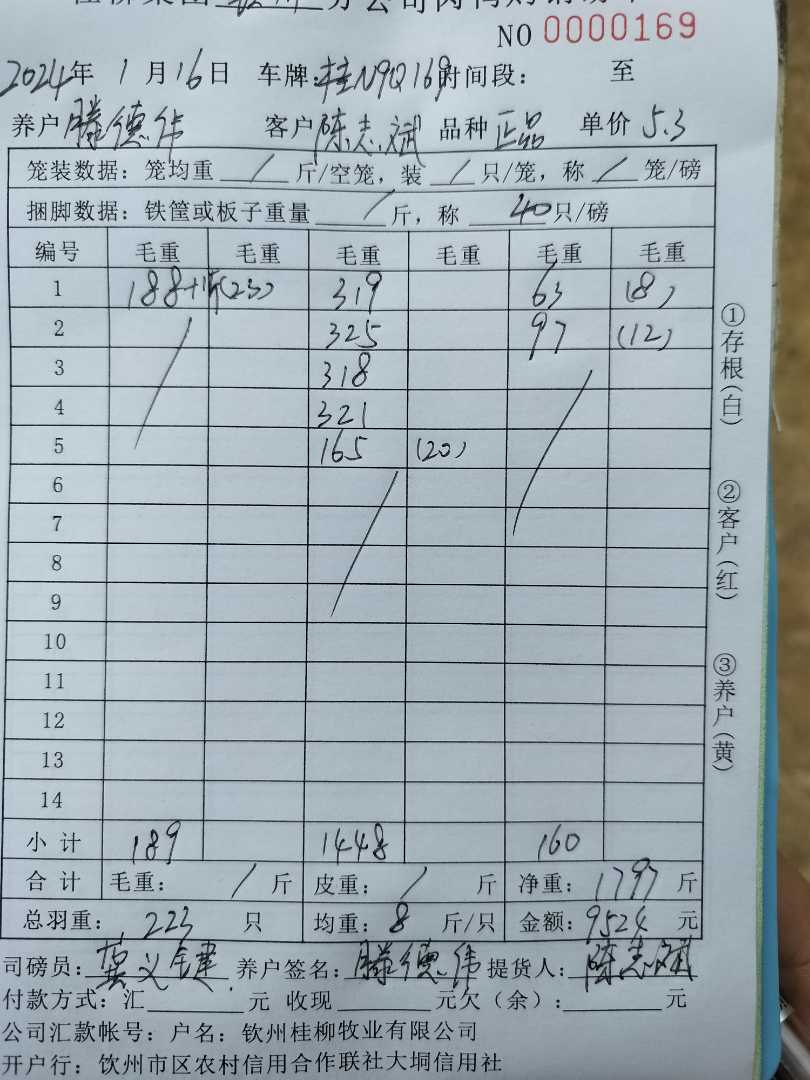 NO 0000169
2024年 1月16日 车牌:桂N9Q169时间段: 至
养户 滕德伟 客户陈志斌 品种 正品 单价 5.3
笼装数据: 笼均重 / 斤/空笼, 装 / 只/笼, 称 / 笼/磅
捆脚数据: 铁筐或板子重量 / 斤, 称 40只/磅
编号 毛重 毛重 毛重 毛重 毛重 毛重
1 188+1斤(23) 319 63 (8)
2 325 97 (12)
3 318
4 321
5 165 (20)
6
7
8
9
10
11
12
13
14
小计 189 1448 160
合计 毛重: / 斤 皮重: / 斤 净重: 1797 斤
总羽重: 223 只 均重: 8 斤/只 金额: 9524 元
司磅员: 龚义健 养户签名: 滕德伟 提货人: 陈志斌
付款方式: 汇 元 收现 元欠(余): 元
公司汇款帐号: 户名: 钦州桂柳牧业有限公司
开户行: 钦州市区农村信用合作联社大垌信用社
①存根(白)
②客户(红)
③养户(黄)